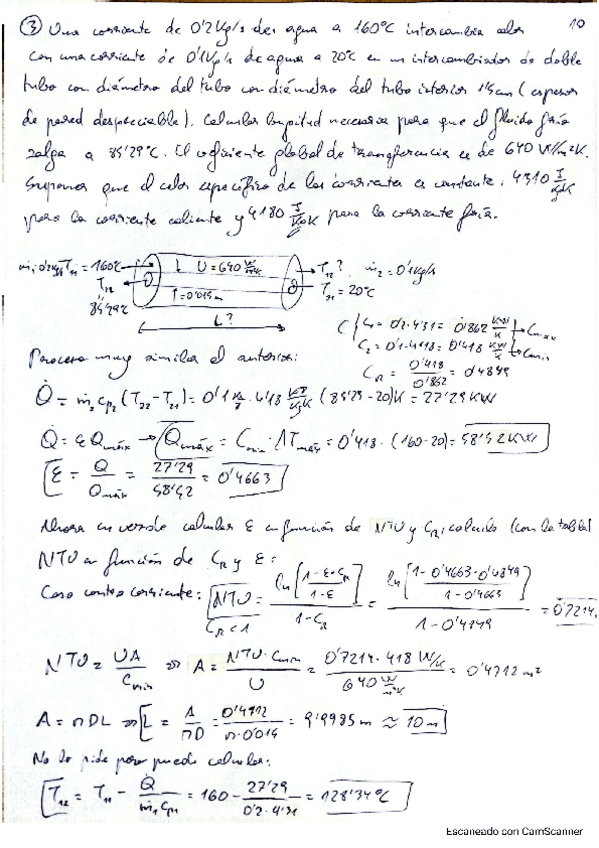 10
③ Una corriente de 0'2 Kg/s de agua a 160°C intercambia calor
con una corriente de 0'1 Kg/s de agua a 20°C en un intercambiador de doble
tubo con diámetro del tubo con diámetro del tubo interior 1'5cm (espesor
de pared despreciable). Calcular longitud necesaria para que el fluido frío
salga a 85'29°C. El coeficiente global de transferencia es de 640 W/m²K.
Suponer que el calor específico de las corrientes es constante: 4310 J/KgK
para la corriente caliente y 4180 J/KgK para la corriente fría.
ṁ₁ 0'2 Kg/s T₁₁ = 160°C U = 640 W/m²K T₁₂? ṁ₂ = 0'1 Kg/s
T₂₂ 85'29°C 0'015m T₂₁ = 20°C
L?
C₁ = 0'2·4'31 = 0'862 KW/K → Cmax
C₂ = 0'1·4'18 = 0'418 KW/K → Cmin
C_R = 0'418/0'862 = 0'4849
Proceso muy similar al anterior:
Q̇ = ṁ₂ cp₂ (T₂₂ - T₂₁) = 0'1 Kg/s · 4'18 KJ/KgK (85'29 - 20)K = 27'29 KW
Q̇ = ε Q̇máx → Q̇máx = Cmin · ΔTmáx = 0'418 · (160-20) = 58'52 KW
ε = Q̇/Q̇máx = 27'29/58'52 = 0'4663
Ahora en vez de calcular ε en función de NTU y C_R, calculo (con la tabla)
NTU en función de C_R y ε:
Caso contracorriente: NTU = ln[(1-ε·C_R)/(1-ε)]/(1-C_R) = ln[(1-0'4663·0'4849)/(1-0'4663)]/(1-0'4849) = 0'7214
C_R < 1
NTU = UA/Cmin ⇒ A = NTU·Cmin/U = 0'7214·418 W/K / 640 W/m²K = 0'4712 m²
A = πDL ⇒ L = A/πD = 0'4712/π·0'015 = 9'9985 m ≈ 10 m
No lo pide pero puedo calcular:
T₁₂ = T₁₁ - Q̇/ṁ₁cp₁ = 160 - 27'29/0'2·4'31 = 128'34°C
Escaneado con CamScanner